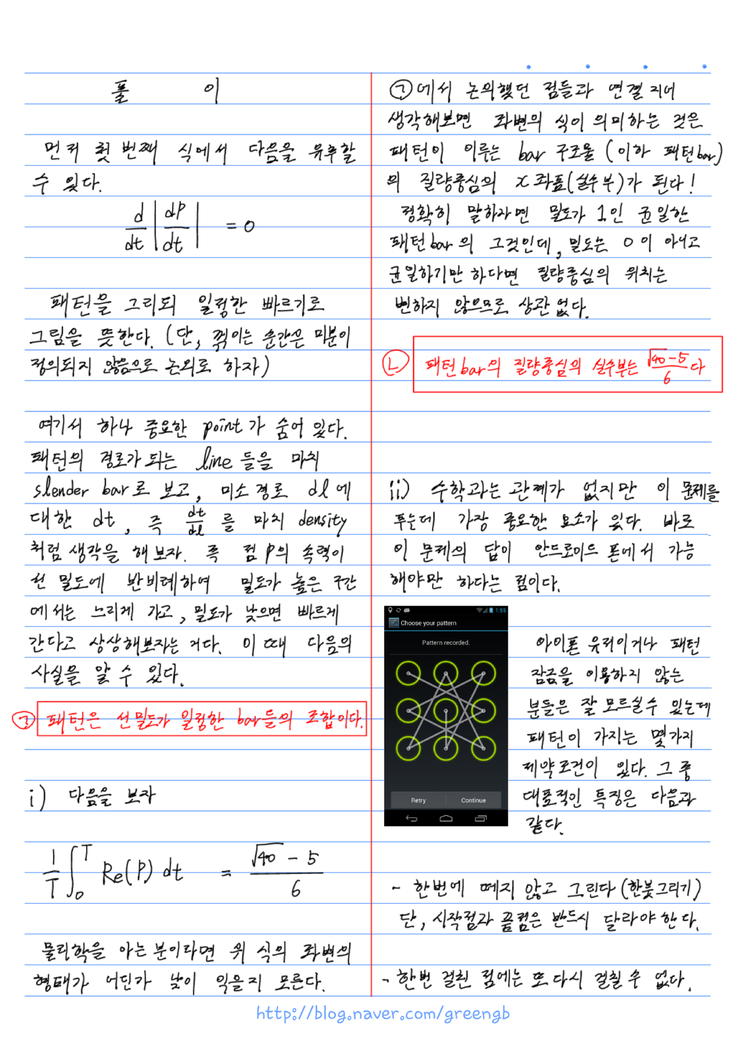 풀 이
먼저 첫 번째 식에서 다음을 유추할
수 있다.
d/dt |dP/dt| = 0
패턴을 그리되 일정한 빠르기로
그림을 뜻한다. (단, 꺾이는 순간은 미분이
정의되지 않음으로 논외로 하자)
여기서 하나 중요한 point가 숨어 있다.
패턴의 경로가 되는 line 들을 마치
slender bar로 보고, 미소 경로 dl에
대한 dt, 즉 dt/dl 를 마치 density
처럼 생각을 해보자. 즉 점 P의 속력이
선 밀도에 반비례하여 밀도가 높은 구간
에서는 느리게 가고, 밀도가 낮으면 빠르게
간다고 상상해보자는 거다. 이 때 다음의
사실을 알 수 있다.
㉠ 패턴은 선밀도가 일정한 bar들의 조합이다.
i) 다음을 보자
1/T ∫₀ᵀ Re(P) dt = (√40 - 5)/6
물리학을 아는 분이라면 위 식의 좌변의
형태가 어딘가 낯이 익을지 모른다.
㉠에서 논의했던 점들과 연결지어
생각해보면 좌변의 식이 의미하는 것은
패턴이 이루는 bar 구조물 (이하 패턴bar)
의 질량중심의 x 좌표(실수부)가 된다!
정확히 말하자면 밀도가 1인 균일한
패턴bar의 그것인데, 밀도는 0이 아니고
균일하기만 하다면 질량중심의 위치는
변하지 않으므로 상관 없다.
㉡ 패턴bar의 질량중심의 실수부는 (√40-5)/6 다
ii) 수학과는 관계가 없지만 이 문제를
푸는데 가장 중요한 요소가 있다. 바로
이 문제의 답이 안드로이드 폰에서 가능
해야만 하다는 점이다.
1:55
Choose your pattern
Pattern recorded.
Retry Continue
아이폰 유저이거나 패턴
잠금을 이용하지 않는
분들은 잘 모르실수 있는데
패턴이 가지는 몇가지
제약조건이 있다. 그 중
대표적인 특징은 다음과
같다.
- 한번에 떼지 않고 그린다 (한붓그리기)
단, 시작점과 끝점은 반드시 달라야 한다.
- 한번 걸친 점에는 또 다시 걸칠 수 없다.
http://blog.naver.com/greengb